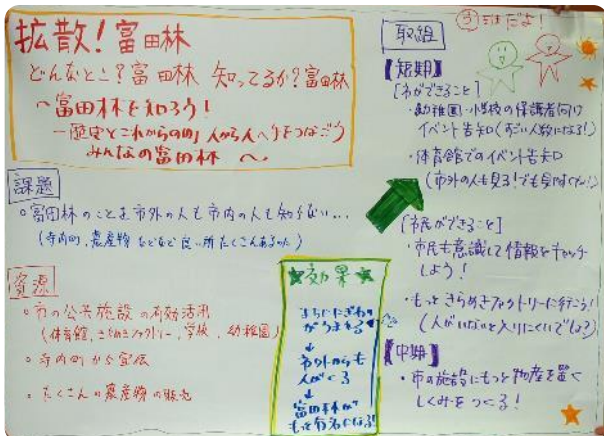 拡散！富田林
どんなとこ？富田林 知ってるか？富田林
〜富田林を知ろう！
ー歴史とこれからの町 人から人へ手をつなごう
みんなの富田林 〜
課題
○富田林のことを市外の人も市内の人も知らない…
(寺内町、農産物などなど良い所たくさんあるのに)
資源
○市の公共施設の有効活用
(体育館、きらめきファクトリー、学校、幼稚園)
○寺内町から宣伝
○たくさんの農産物の販売
★効果★
まちににぎわい
がうまれる
↓
市外からも
人がくる
↓
富田林が
もっと有名になる!
③班だよ！
取組
【短期】
・幼稚園・小学校の保護者向け
イベント告知(すごい人数になる！)
・体育館でのイベント告知
(市外の人も見る！でも見にくい！)
[市民ができること]
・市民も意識して情報をキャッチ
しよう！
・もっときらめきファクトリーに行こう！
(人がいないと入りにくいでしょ？)
【中期】
・市の施設にもっと物産を置く
しくみをつくる！